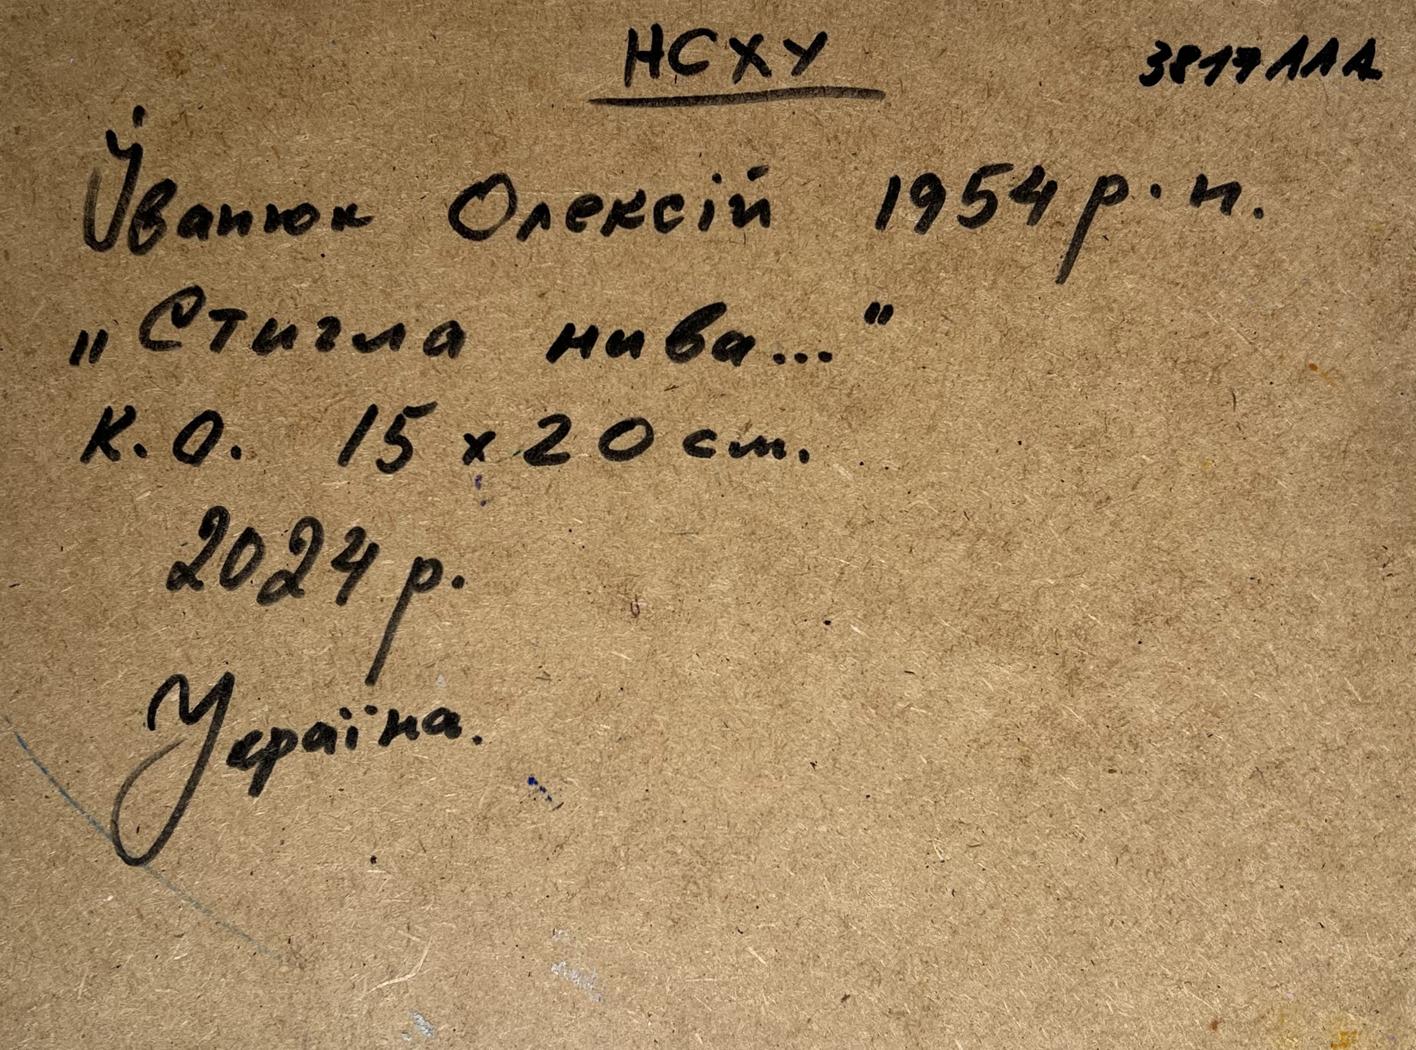 НСХУ
3817ЛЛА
Йванюк Олексій 1954 р. н.
„Стигла нива..."
К. О. 15 х 20 см.
2024 р.
Україна.